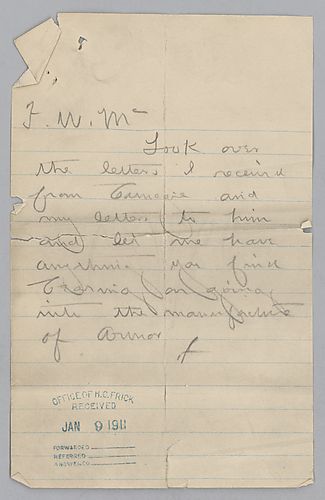 F. W. Mc
Look over
the letters I receivd
from Carnegie and
my letters to him
and let me have
anything you find
bearing on going
into the manufacture
of Armor
f
OFFICE OF H.C. FRICK
RECEIVED
JAN 9 1911
FORWARDED
REFERRED
ANSWERED